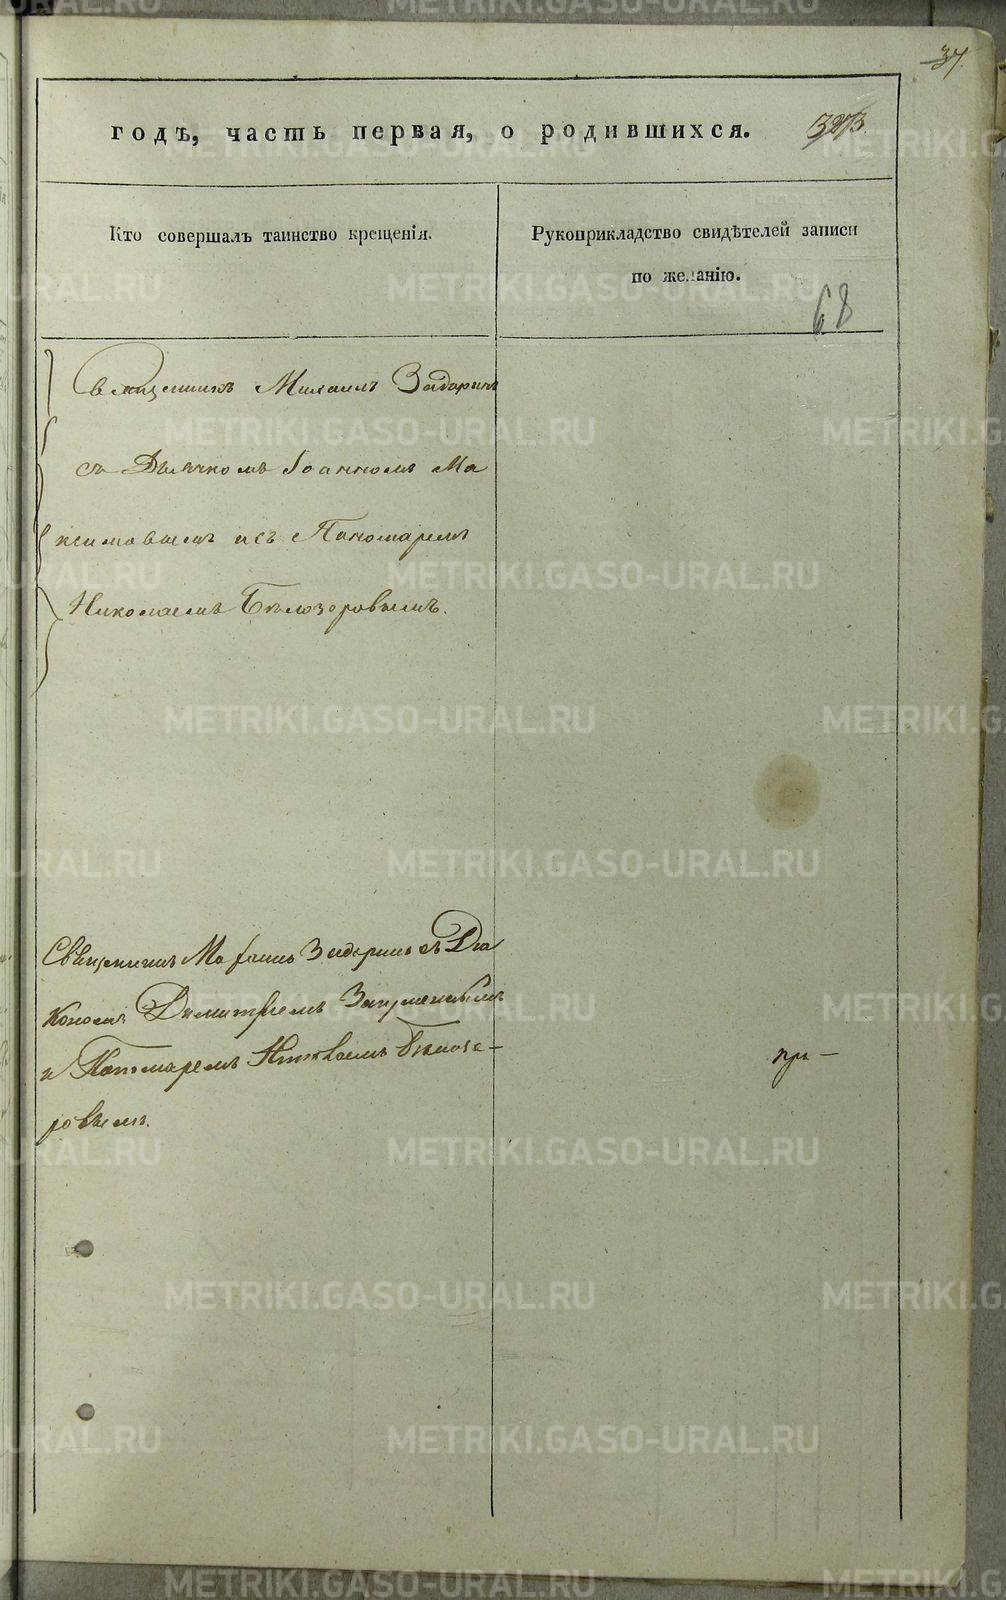 37
годъ, часть первая, о родившихся.
Кто совершалъ таинство крещенія.
Рукоприкладство свидѣтелей записи
по желанію.
68
Священникъ Михаилъ Задоринъ
съ Дьячкомъ Іоанномъ Ма
ксимовымъ и съ Пономаремъ
Николаемъ Бѣлозеровымъ.
Священникъ Михаилъ Задоринъ съ Діа
кономъ Димитріемъ
и Пономаремъ Николаемъ Бѣлозе-
ровымъ.
при —
METRIKI.GASO-URAL.RU